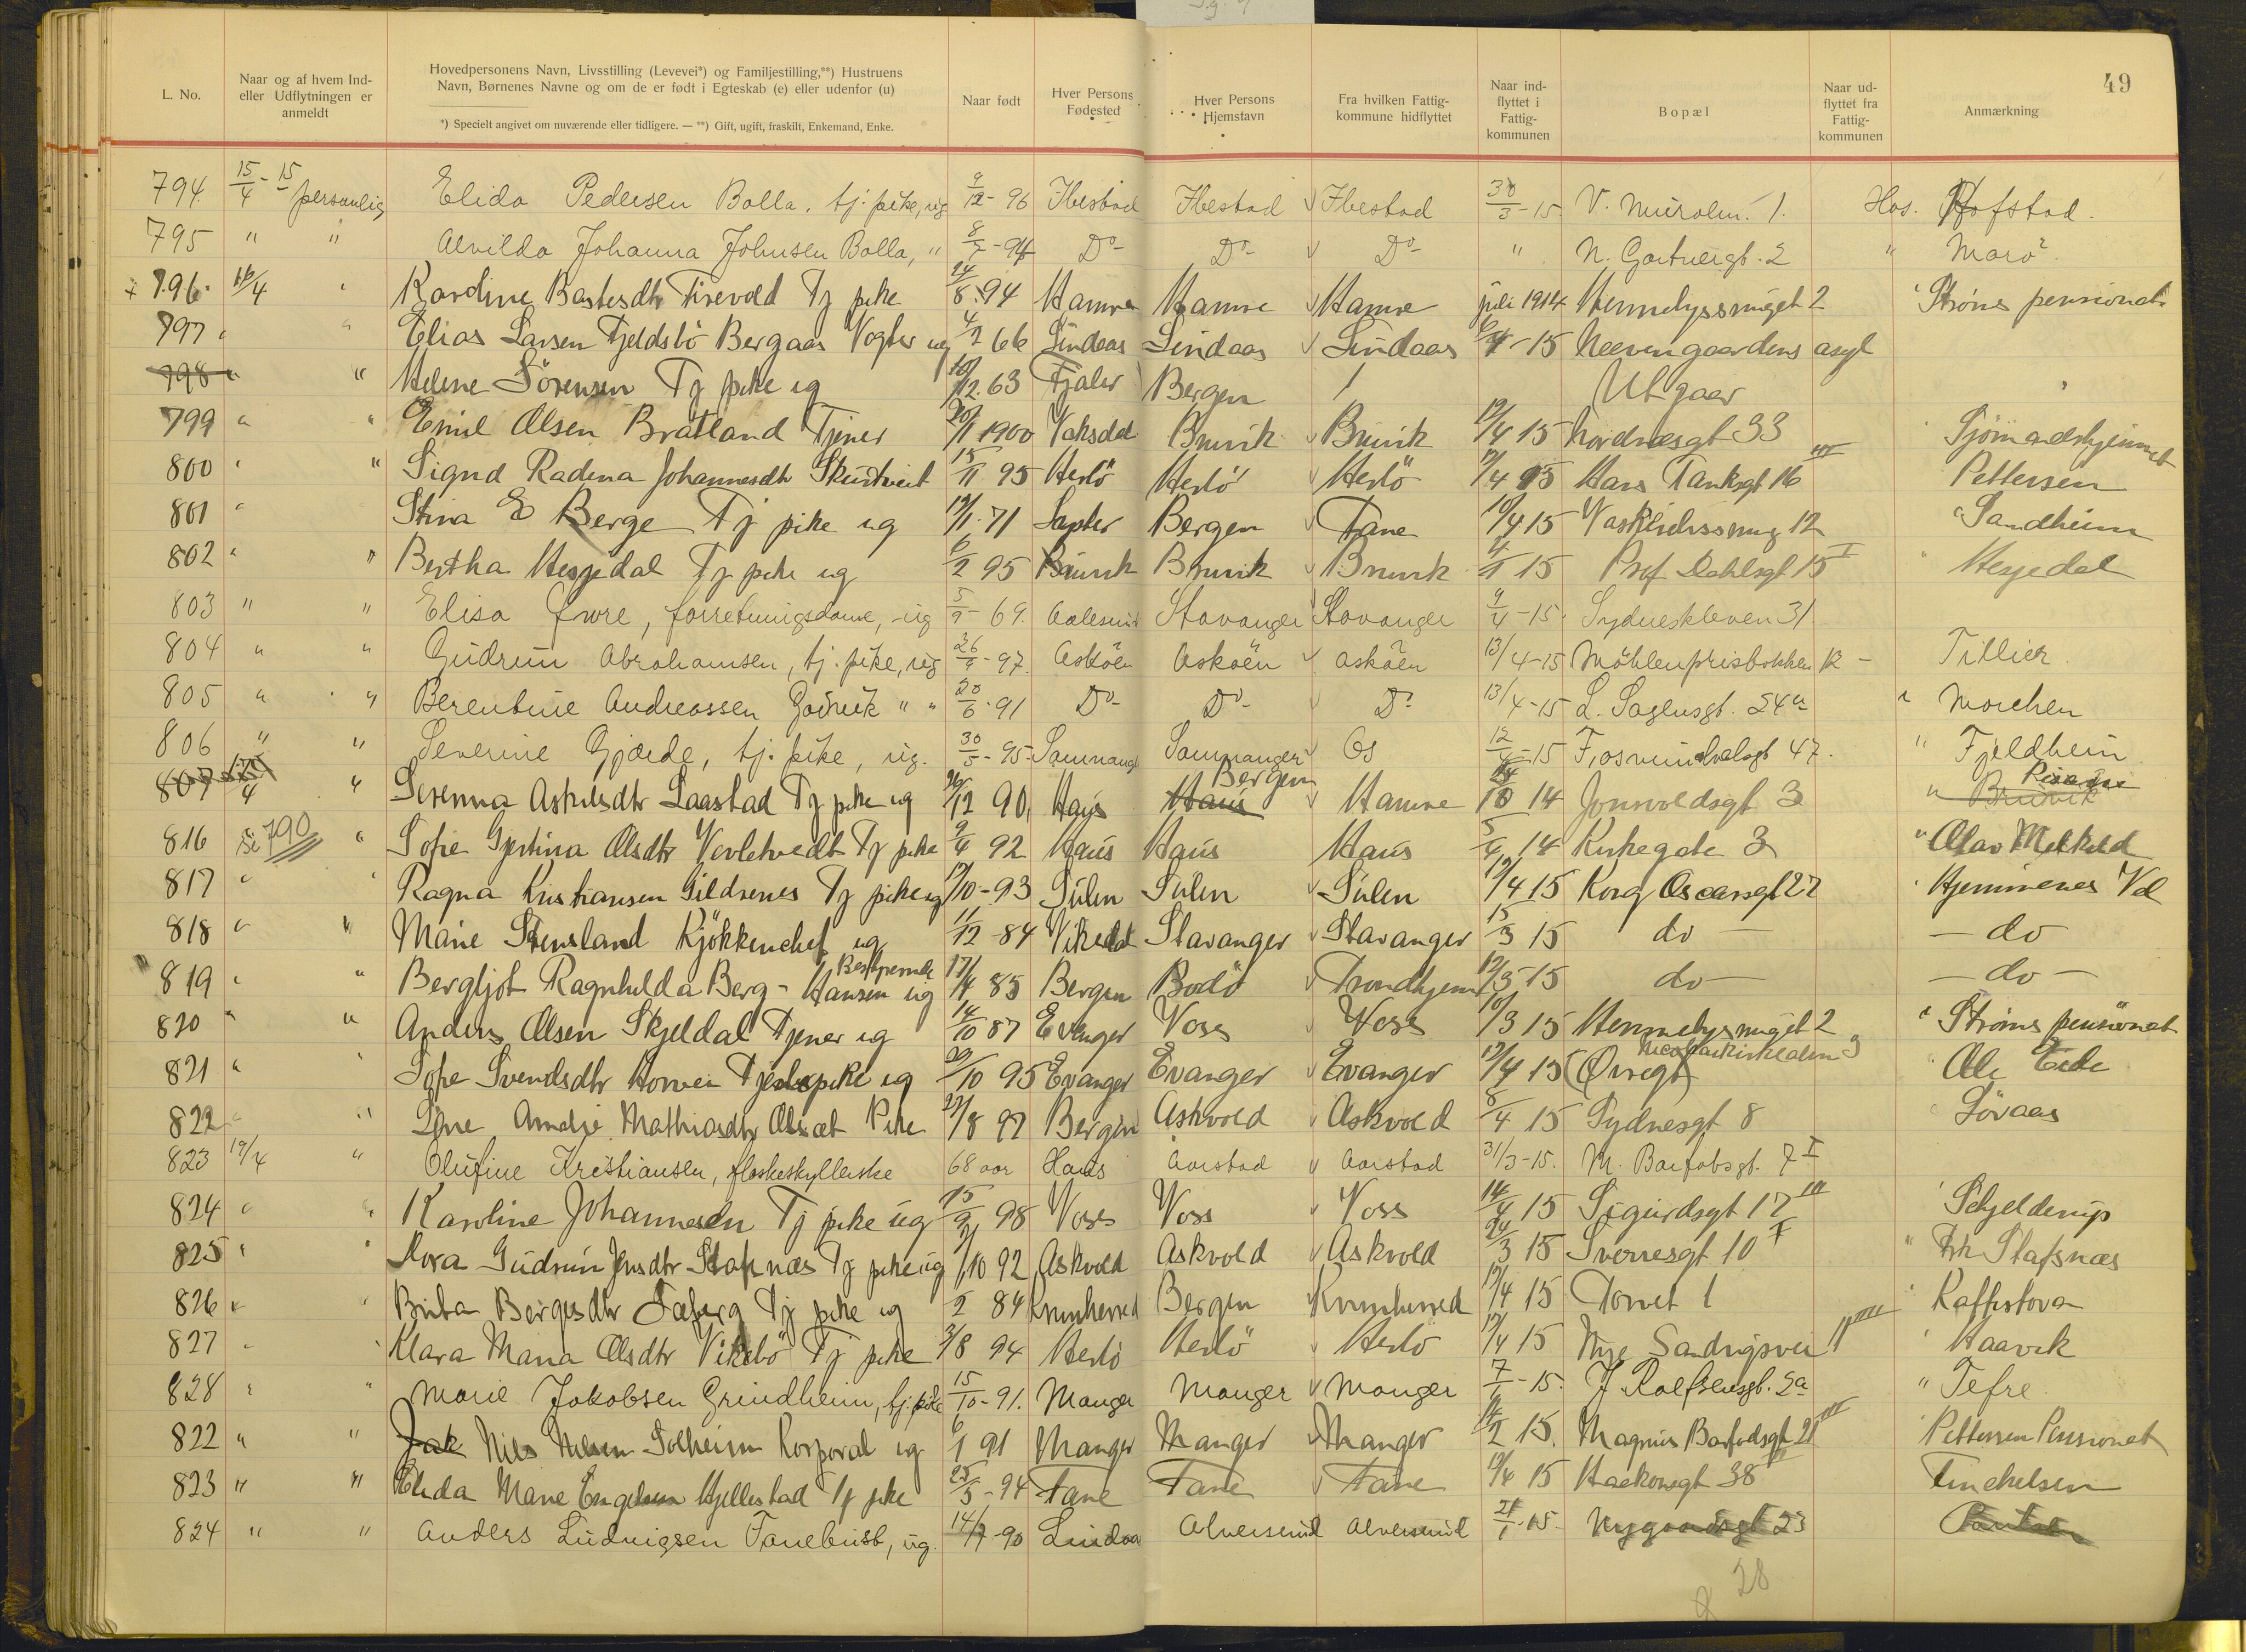 49
L. No.
Naar og af hvem Ind- eller Udflytningen er anmeldt
Hovedpersonens Navn, Livsstilling (Levevei*) og Familjestilling,**) Hustruens Navn, Børnenes Navne og om de er født i Egteskab (e) eller udenfor (u)
*) Specielt angivet om nuværende eller tidligere. — **) Gift, ugift, fraskilt, Enkemand, Enke.
Naar født
Hver Persons Fødested
Hver Persons Hjemstavn
Fra hvilken Fattig- kommune hidflyttet
Naar ind- flyttet i Fattig- kommunen
Bopæl
Naar ud- flyttet fra Fattig- kommunen
Anmærkning
794. 15/4-15 personlig Elida Pedersen Bolla, tj. pike, ug. 9/12-96 Ibestad Ibestad Ibestad 30/3-15. V. Muralm. 1. Hos. Hofstad.
795 " " Alvilda Johanna Johnsen Bolla, " 8/7-94 Do- Do- Do- " N. Gartnergt. 2 "
796. 16/4 " Karoline Bastesdtr Tirevold Tj pike 24/8.94 Hamre Hamre Hamre juli 1914 Hennelyssmuget 2 " Strøms pensionat
797 " " Elias Larsen Fjeldsbö Bergaas Vogter ug 4/2 66 Lindaas Lindaas Lindaas 15 Neevengaardens asyl
798 " " Helene Sörensen Tj pike ug 10/12.63 Fjaler Bergen Utgaar
799 " " Emil Olsen Bratland Tjener 20/1 1900 Vaksdal Bruvik Bruvik 12/4 15 Nordnesgt 33 Sjömandshjemmet
800 " " Signd Radina Johannesdtr Skurtveit 15/11 95 Herlö Herlö Herlö 12/4 15 Hans Tanksgt 16 III Pettersen
801 " Stina E Berge Tj pike ug 12/1.71 Bergen Fane 10/4 15 12 " Sandheim
802 " " Bertha Hesjedal Tj pike ug 6/2 95 Bruvik Bruvik Bruvik 15 Prof Dahlsgt 15 I " Hesjedal
803 " " Elisa Furre, forretningsdame, ug 5/9-69. Aalesund Stavanger Stavanger 9/4-15. Sydneskleven 31
804 " " Gudrun Abrahamsen, tj. pike, ug 26/9-97. Askøen Askøen Askøen 13/4-15 Möhlenprisbakken 12 - Tillier.
805 " " Berentine Andreassen " " 20/6-91 Do- Do- Do 13/4-15 L. Sagensgt. 24a " Morchen
806 " " Severine Gjærde, tj. pike, ug. 30/5-95- Samnanger Samnanger Os 12/4-15 47. " Fjeldheim
807 " Serenna Askilsdtr Laastad Tj pike ug 26/12 90, Haus Haus Bergen Hamre 10 14 Jonsvoldsgt 3 " Bruvik
816 Se 790 " Sofie Gjertina Olsdtr Verletvedt Tj pike 9/4 92 Haus Haus Haus 5/4 14 Kirkegate 3 "
817 " " Ragna Kristiansen Gildrenes Tj pike ug 12/10-93 Sulen Sulen Sulen 12/4 15 Kong Oscarsgt 22 " Hjemmenes Vel
818 " " Marie Stensland Kjökkenchef ug 11/12-84 Vikedal Stavanger Stavanger 15/3 15 do - - do
819 " " Bergljot Ragnhilda Berg-Hansen ug Bestyrerinde 17/4 85 Bergen Bodö Trondhjem 12/3-15 do - - do -
820 " " Anders Olsen Skjeldal Tjener ug 14/10 87 Evanger Voss Voss 10/3 15 Hennelyssmuget 2 " Strøms pensionat
821 " " Sofie Svendsdtr Horvei Tjenstepike ug 20/10 95 Evanger Evanger Evanger 12/4 15 (Øvregt) Nicolaikirkealm 3 " Ole Eide
822 " " Line Amalie Mathiasdtr Olset Pike 27/8 97 Bergen Askvold Askvold 8/4 15 Sydnesgt 8 Lövaas
823 19/4 " Olufine Kristiansen, flaskeskyllerske 68 aar Haus Aarstad Aarstad 31/3-15. M. Barfodsgt. 7 I
824 " " Karoline Johannesen Tj pike ug 15/9 98 Voss Voss Voss 14/4 15 Sigurdsgt 17 III " Schjelderup
825 " " Kora Gudrun Jensdtr Stafsnæs Tj pike ug 10 92 Askvold Askvold Askvold 24/3 15 Sverresgt 10 I " Stafsnæs
826 " " Brita Børgesdtr Tj pike ug 2 84 Kvinherred Bergen Kvinherred 12/4 15 Torvet 1 " Kaffistova
827 " " Klara Maria Olsdtr Vikebö Tj pike 2/8 94 Herlö Herlö Herlö 12/4 15 Nye Sandvigsvei " Haavik
828 " " Marie Jakobsen Grindheim, tj. pike 15/10-91. Manger Manger Manger 7/1-15. J Rolfsensgt. 2a " Tefre
822 " " Jak Nils Nilsen Solheim Korporal ug 6/1 91 Manger Manger Manger 14/2 15. Magnus Barfodsgt 21 III " Pettersen Pensionat
823 " " Elida Marie Engelsen Hjellestad Tj pike 25/5-94 Fane Fane Fane 12/4 15 Haakonsgt 38 III
824 " " Anders Ludvigsen Tanebust, ug. 14/7-90 Lindaas Alversund Alversund 21/1-15- Nygaardsgt 23
28